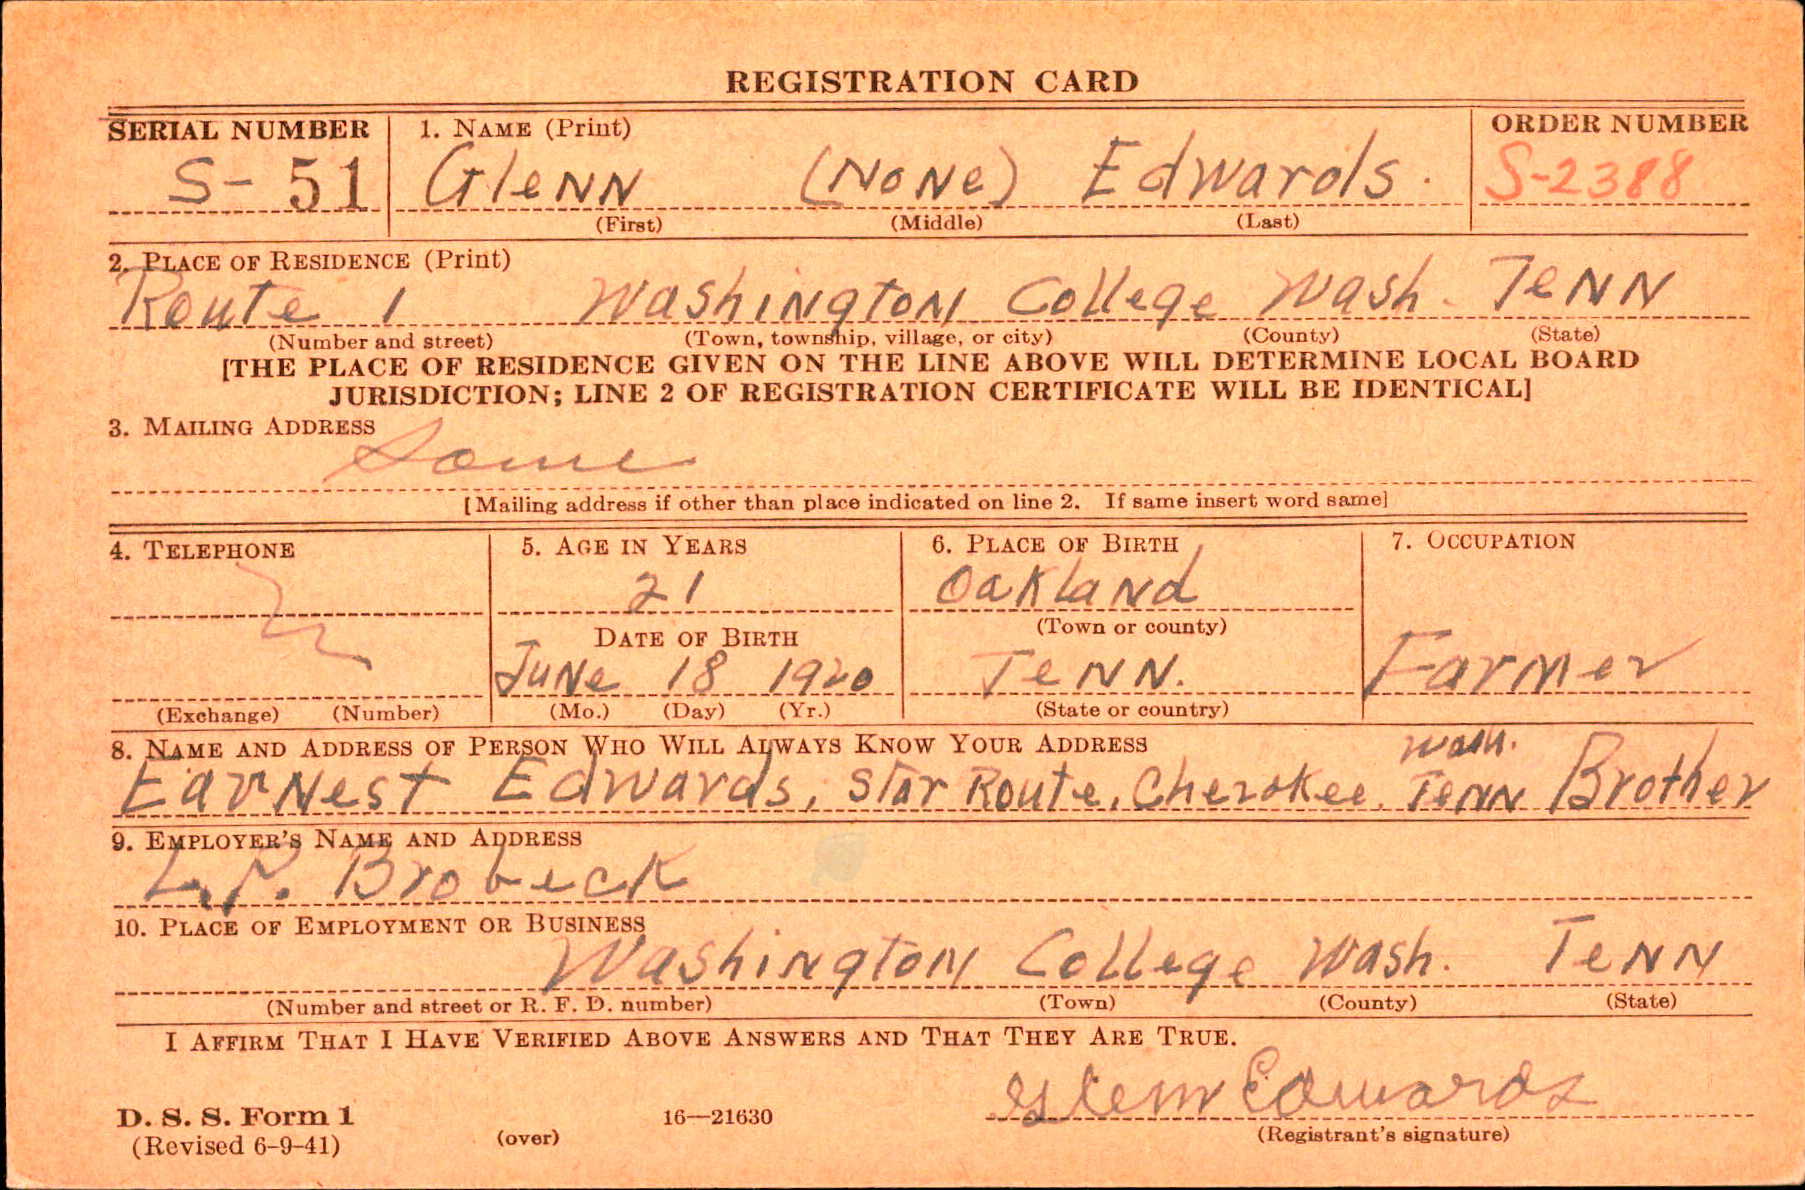 REGISTRATION CARD
SERIAL NUMBER 1. NAME (Print) ORDER NUMBER
S- 51 Glenn (None) Edwards. S-2388
(First) (Middle) (Last)
2. PLACE OF RESIDENCE (Print)
Route 1 Washington College Wash. Tenn
(Number and street) (Town, township, village, or city) (County) (State)
[THE PLACE OF RESIDENCE GIVEN ON THE LINE ABOVE WILL DETERMINE LOCAL BOARD
JURISDICTION; LINE 2 OF REGISTRATION CERTIFICATE WILL BE IDENTICAL]
3. MAILING ADDRESS
Same
[Mailing address if other than place indicated on line 2. If same insert word same]
4. TELEPHONE 5. AGE IN YEARS 6. PLACE OF BIRTH 7. OCCUPATION
21 Oakland
(Town or county)
DATE OF BIRTH
June 18 1920 Tenn. Farmer
(Exchange) (Number) (Mo.) (Day) (Yr.) (State or country)
8. NAME AND ADDRESS OF PERSON WHO WILL ALWAYS KNOW YOUR ADDRESS
Wash.
Earnest Edwards, Star Route, Cherokee, Tenn Brother
9. EMPLOYER'S NAME AND ADDRESS
L.P. Brobeck
10. PLACE OF EMPLOYMENT OR BUSINESS
Washington College Wash. Tenn
(Number and street or R. F. D. number) (Town) (County) (State)
I AFFIRM THAT I HAVE VERIFIED ABOVE ANSWERS AND THAT THEY ARE TRUE.
Glenn Edwards
D. S. S. Form 1 16—21630
(Revised 6-9-41) (over) (Registrant's signature)